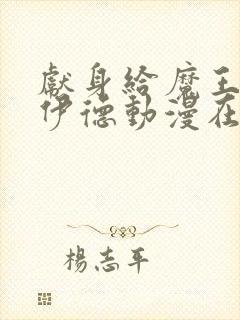 獻身給魔王
伊德動漫在
楊志平